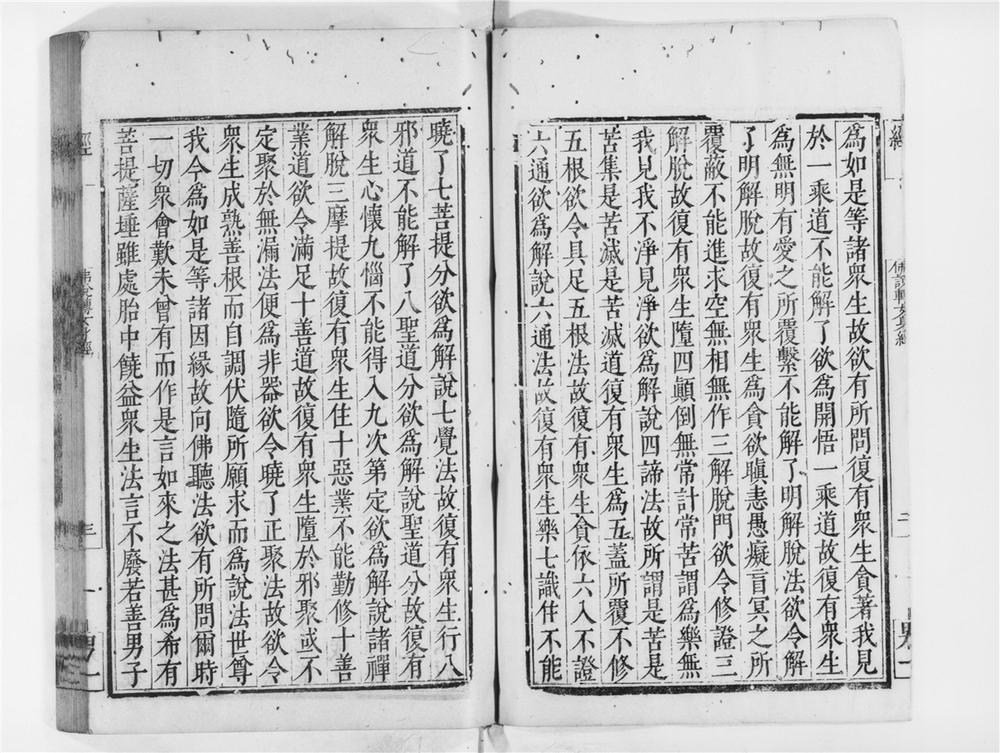 爲如是等諸衆生故欲有所問復有衆生貪著我見
於一乘道不能解了欲爲開悟一乘道故復有衆生
爲無明有愛之所覆繫不能解了明解脫法欲令解
了明解脫故復有衆生爲貪欲瞋恚愚癡盲冥之所
覆蔽不能進求空無相無作三解脫門欲令修證三
解脫故復有衆生墮四顚倒無常計常苦謂爲樂無
我見我不淨見淨欲爲解說四諦法故所謂是苦是
苦集是苦滅是苦滅道復有衆生爲五蓋所覆不修
五根欲令具足五根法故復有衆生貪依六入不證
六通欲爲解說六通法故復有衆生樂七識住不能
曉了七菩提分欲爲解說七覺法故復有衆生行八
邪道不能解了八聖道分欲爲解說聖道分故復有
衆生心懷九惱不能得入九次第定欲爲解說諸禪
解脫三摩提故復有衆生住十惡業不能勤修十善
業道欲令滿足十善道故復有衆生墮於邪聚或不
定聚於無漏法便爲非器欲令曉了正聚法故欲令
衆生成熟善根而自調伏隨所願求而爲說法世尊
我今爲如是等諸因緣故向佛聽法欲有所問爾時
一切衆會歎未曾有而作是言如來之法甚爲希有
菩提薩埵雖處胎中饒益衆生法言不廢若善男子
經
佛說轉女身經
三
男一